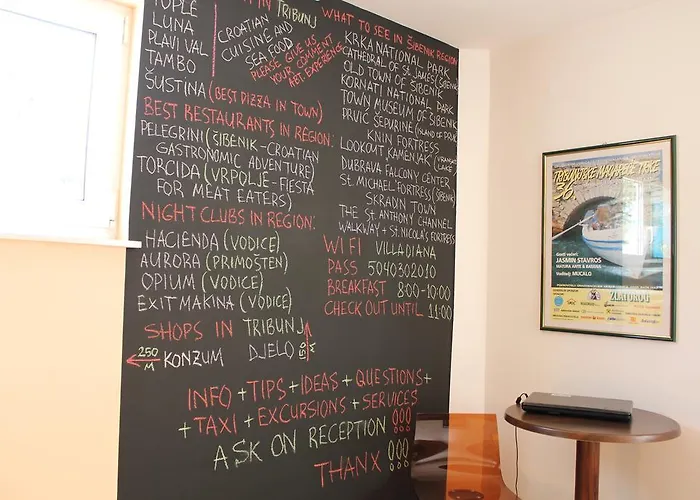 TOPLE
LUNA
PLAVI VAL
TAMBO
ŠUSTINA (BEST PIZZA IN TOWN)
TRIBUNJ
CROATIAN
CUISINE AND
SEA FOOD
PLEASE GIVE US
YOUR COMMENT
ABT. EXPERIENCE
BEST RESTAURANTS IN REGION:
PELEGRINI (ŠIBENIK - CROATIAN
GASTRONOMIC ADVENTURE)
TORCIDA (VRPOLJE - FIESTA
FOR MEAT EATERS)
NIGHT CLUBS IN REGION:
HACIENDA (VODICE)
AURORA (PRIMOŠTEN)
OPIUM (VODICE)
EXIT MAKINA (VODICE)
SHOPS IN TRIBUNJ
250 M KONZUM
DJELO 150 M
WHAT TO SEE IN ŠIBENIK REGION
KRKA NATIONAL PARK
CATHEDRAL OF ST. JAMES (ŠIBENIK)
OLD TOWN OF ŠIBENIK
KORNATI NATIONAL PARK
TOWN MUSEUM OF ŠIBENIK
PRVIĆ ŠEPURINE (ISLAND OF PRVIĆ)
KNIN FORTRESS
LOOKOUT KAMENJAK (VRANSKO LAKE)
DUBRAVA FALCONRY CENTER
ST. MICHAEL FORTRESS (ŠIBENIK)
SKRADIN TOWN
THE ST. ANTHONY CHANNEL
WALKWAY + ST. NICOLA'S FORTRESS
WIFI VILLADIANA
PASS 5040302010
BREAKFAST 8:00-10:00
CHECK OUT UNTIL 11:00
INFO + TIPS + IDEAS + QUESTIONS +
+ TAXI + EXCURSIONS + SERVICES
ASK ON RECEPTION !!!
THANX !!!
36.
TRIBUNJSKE MAGAREĆE TRKE
Gosti večeri
JASMIN STAVROS
MATURA ANTE & BANANA
Voditelj: MUCALO
ZLATOROG